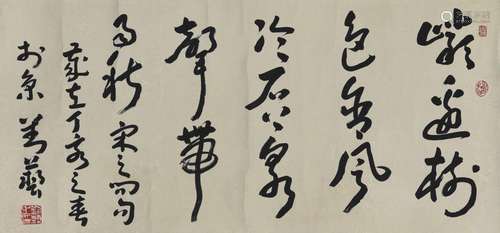 巖邊樹
色含風
冷石上泉
聲帶
雨秋 宋之問句
歲在丁亥之春
於京